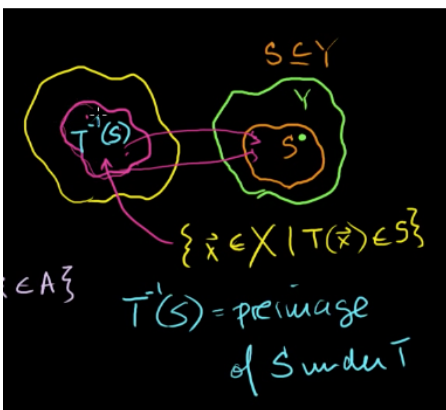 S ⊆ Y
Y
T⁻¹(S)
S
{ x⃗ ∈ X | T(x⃗) ∈ S}
∈ A}
T⁻¹(S) = preimage
of S under T